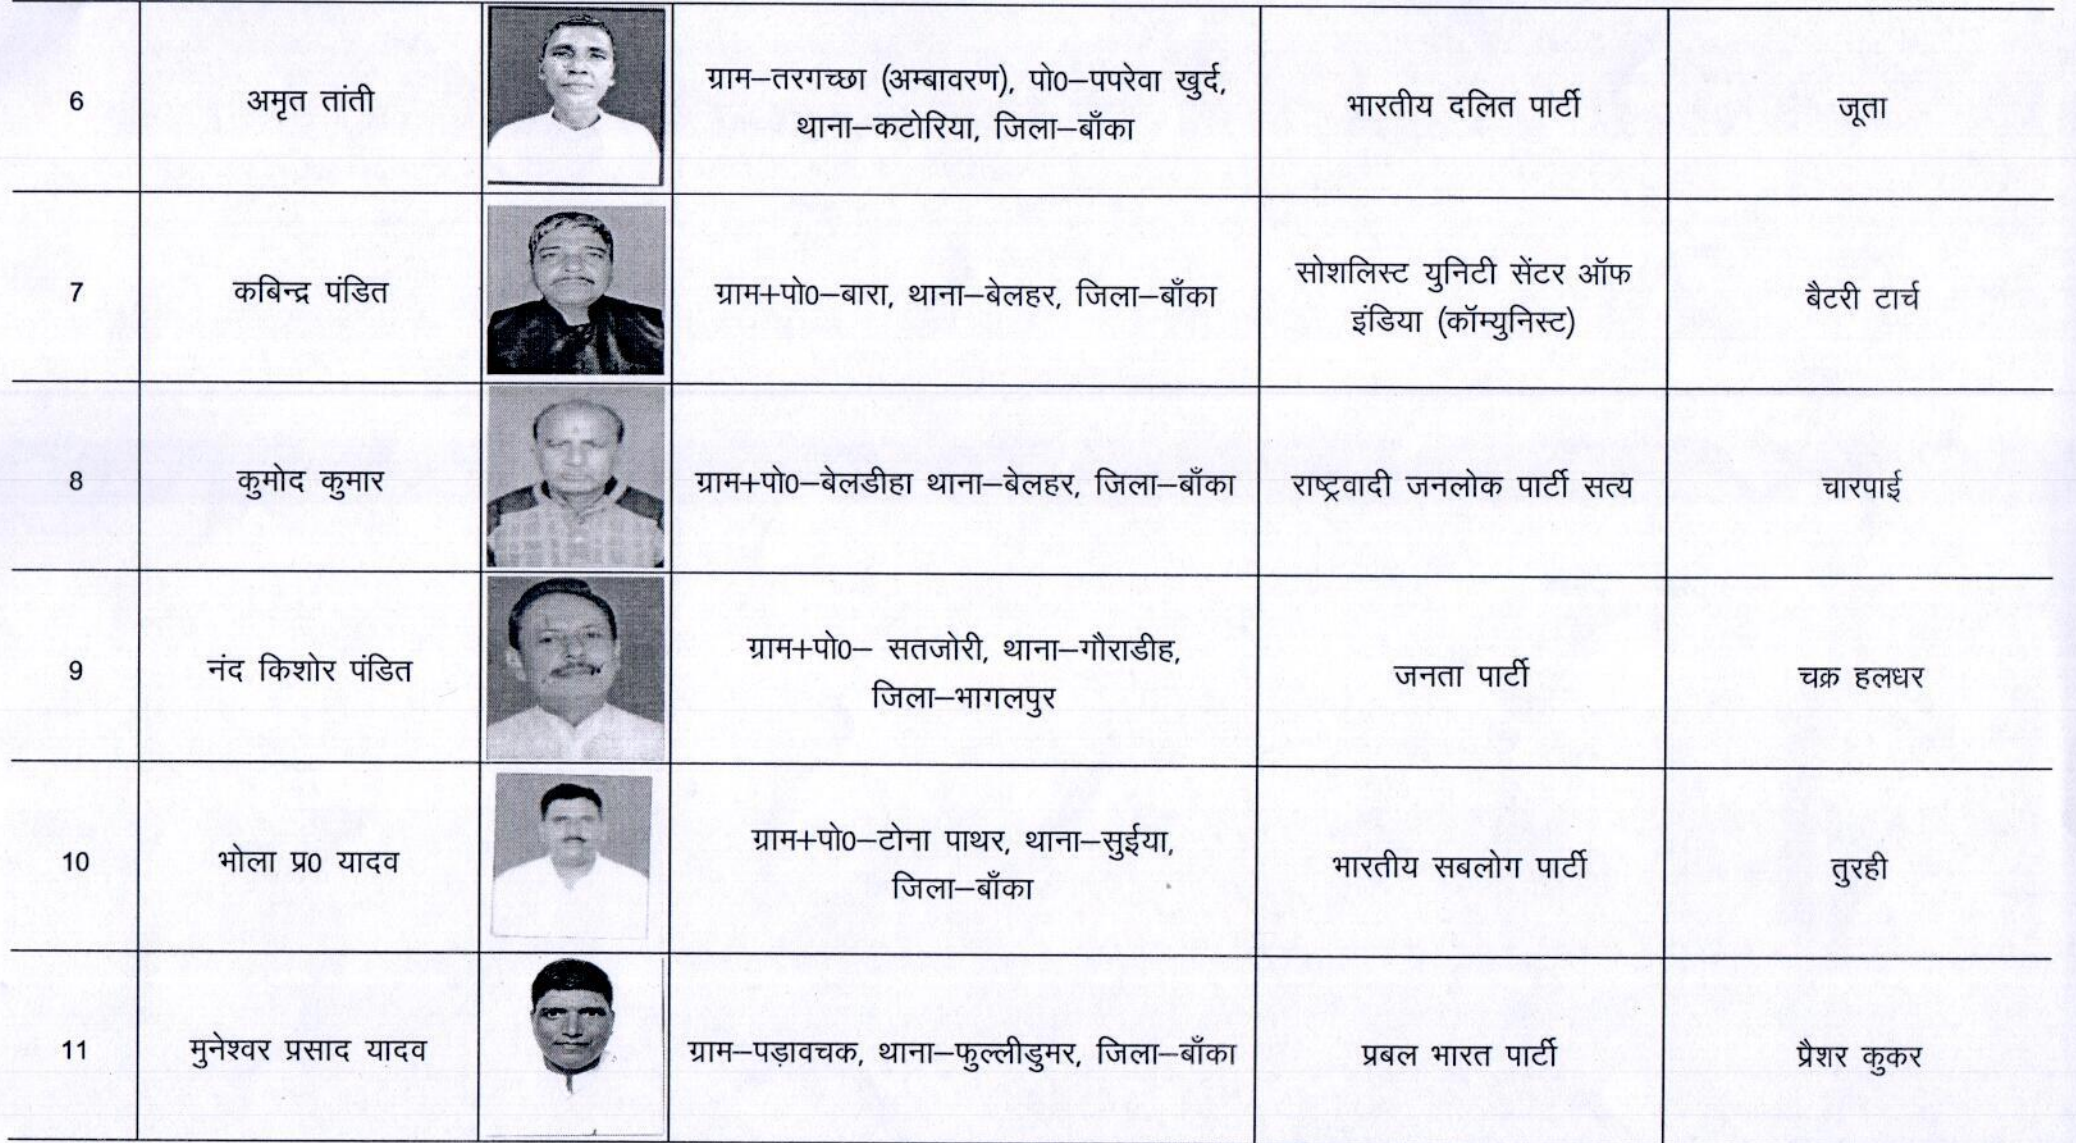 6 अमृत तांती ग्राम–तरगच्छा (अम्बावरण), पो0–पपरेवा खुर्द, थाना–कटोरिया, जिला–बाँका भारतीय दलित पार्टी जूता
7 कबिन्द्र पंडित ग्राम+पो0–बारा, थाना–बेलहर, जिला–बाँका सोशलिस्ट युनिटी सेंटर ऑफ इंडिया (कॉम्युनिस्ट) बैटरी टार्च
8 कुमोद कुमार ग्राम+पो0–बेलडीहा थाना–बेलहर, जिला–बाँका राष्ट्रवादी जनलोक पार्टी सत्य चारपाई
9 नंद किशोर पंडित ग्राम+पो0– सतजोरी, थाना–गौराडीह, जिला–भागलपुर जनता पार्टी चक्र हलधर
10 भोला प्र0 यादव ग्राम+पो0–टोना पाथर, थाना–सुईया, जिला–बाँका भारतीय सबलोग पार्टी तुरही
11 मुनेश्वर प्रसाद यादव ग्राम–पड़ावचक, थाना–फुल्लीडुमर, जिला–बाँका प्रबल भारत पार्टी प्रैशर कुकर